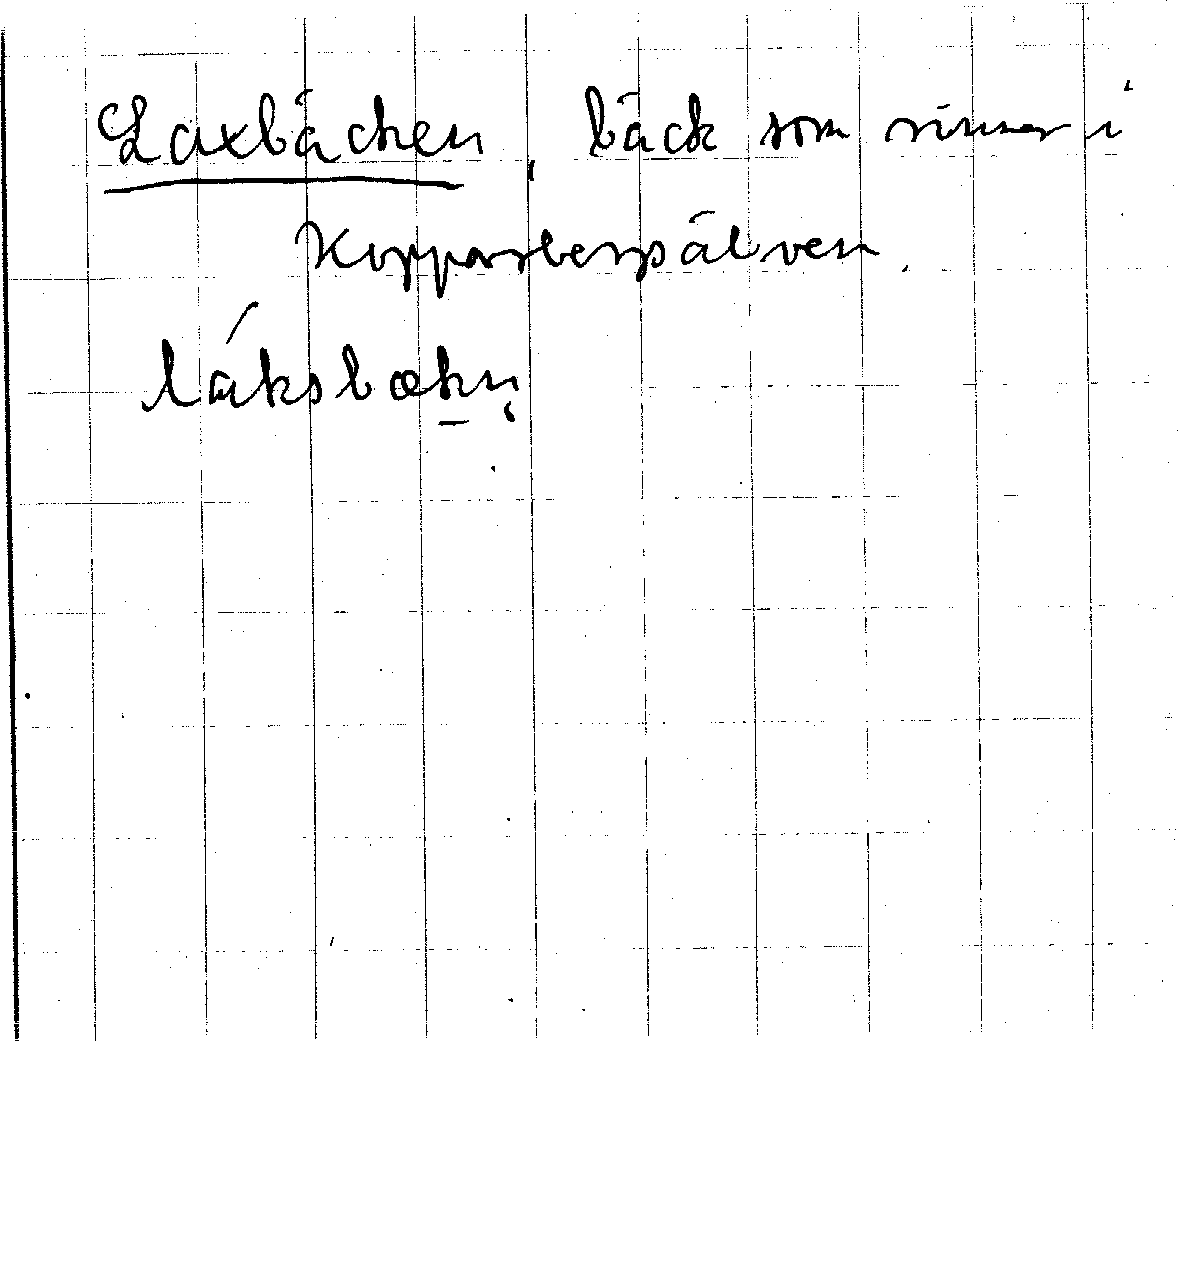 Laxbäcken, bäck som rinner i
Kopparbergsälven.
láksbækn̥